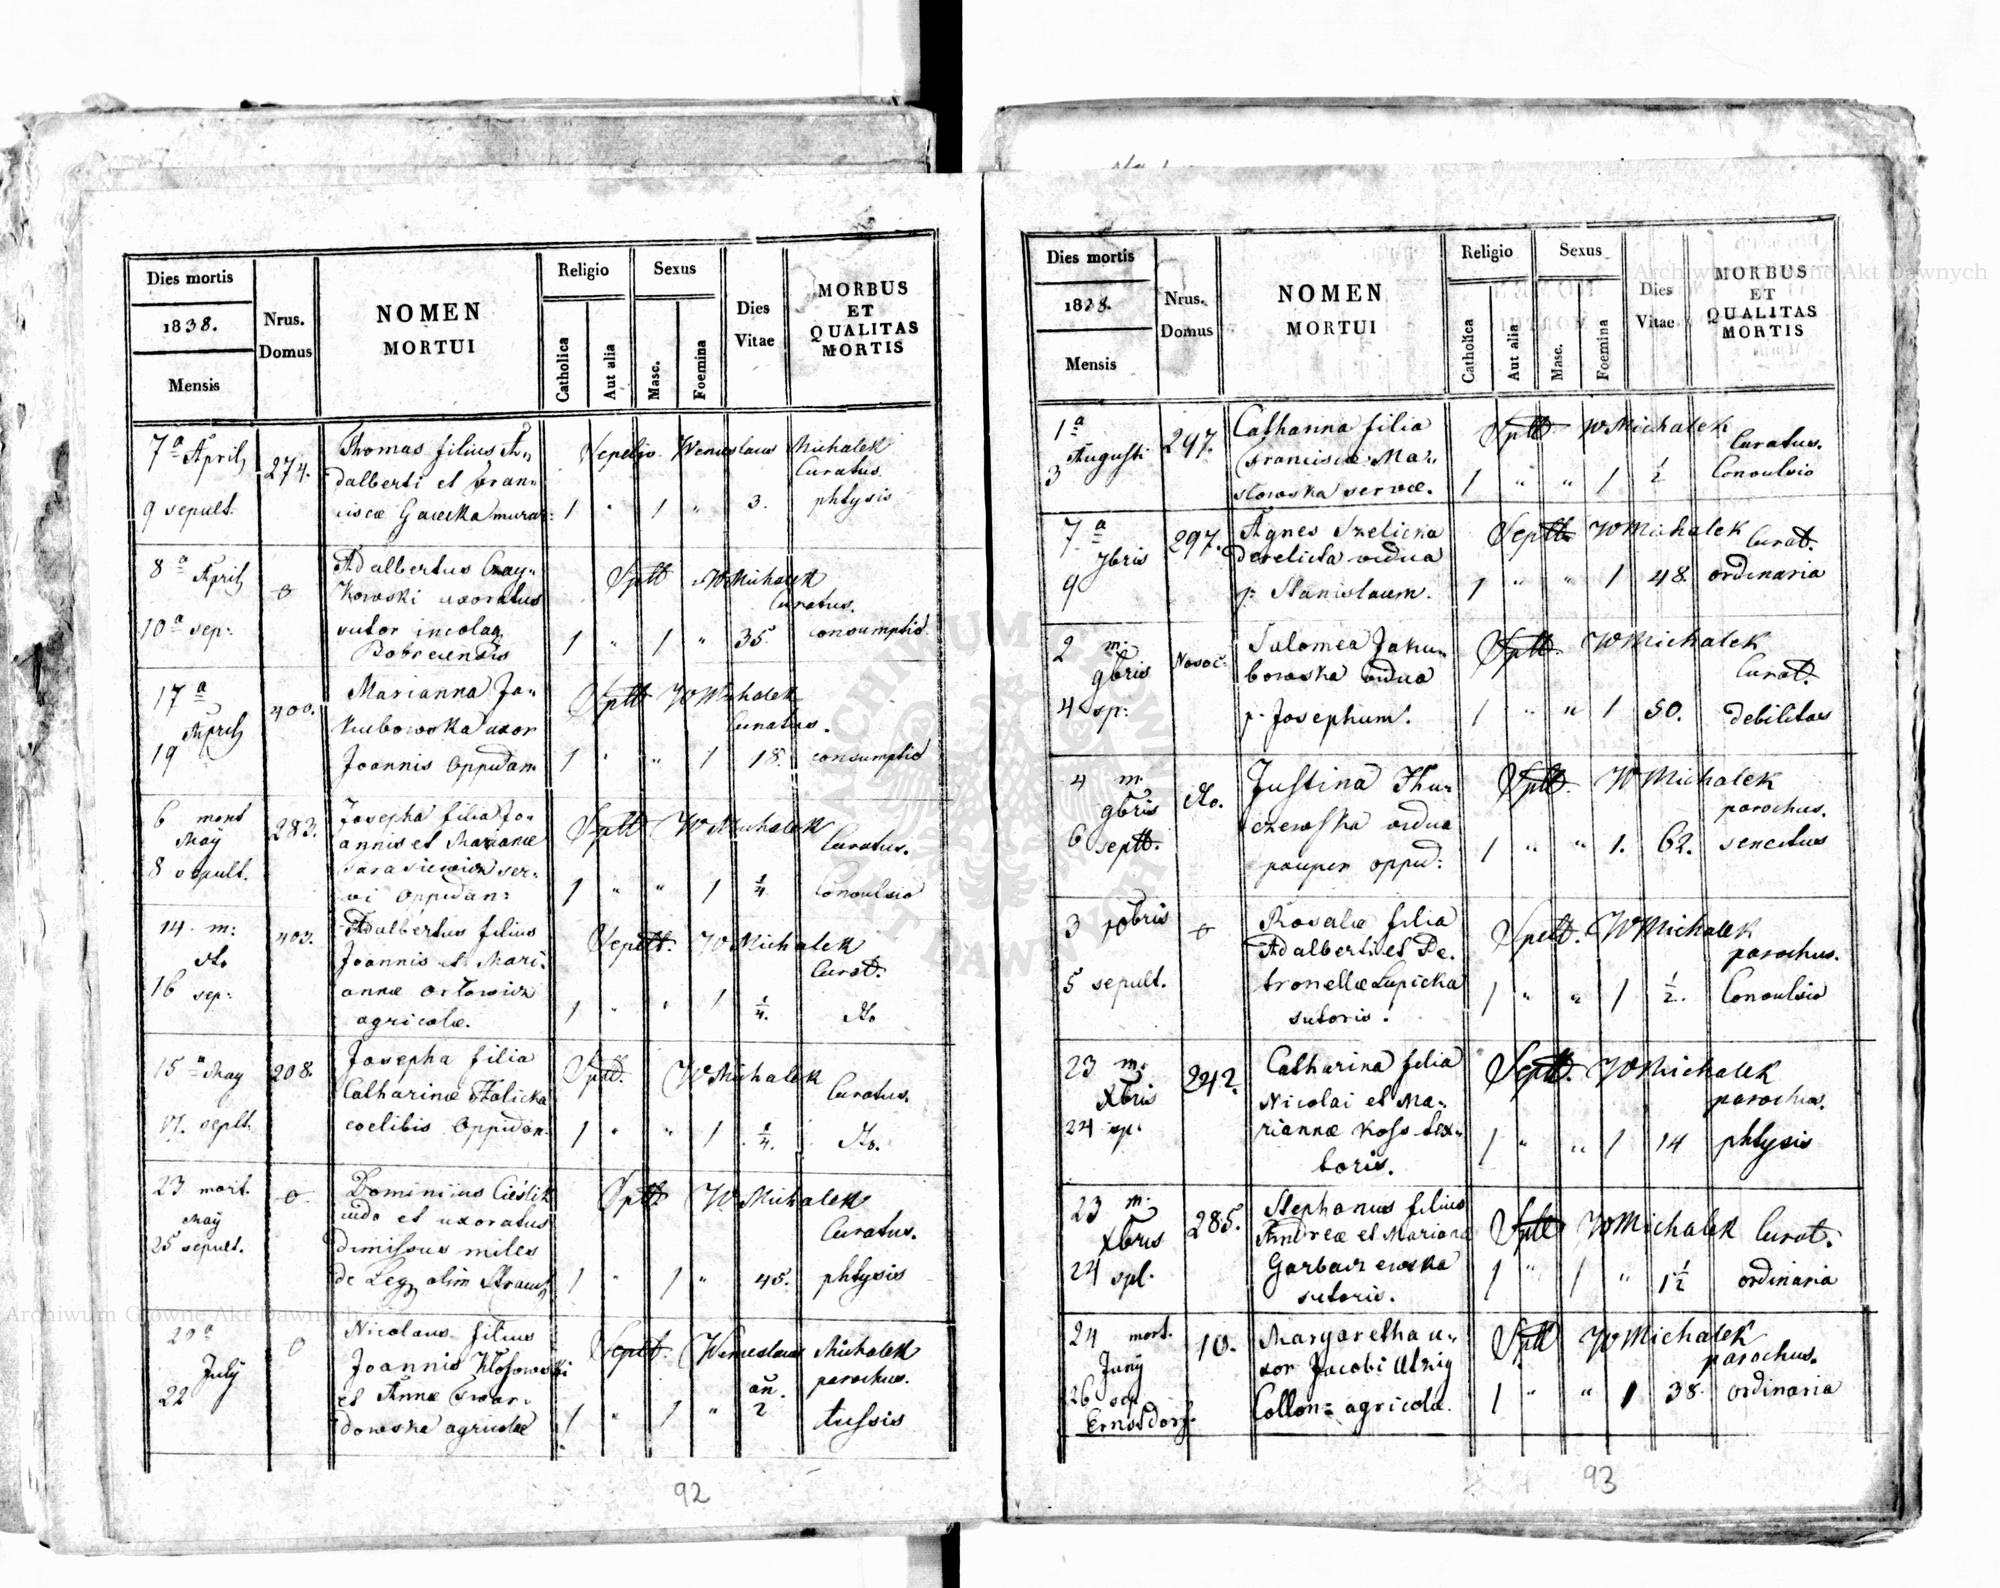 Dies mortis
1838.
Mensis
Nrus.
Domus
NOMEN
MORTUI
Religio
Catholica
Aut alia
Sexus
Masc.
Foemina
Dies
Vitae
MORBUS
ET
QUALITAS
MORTIS
7a April
9 sepult.
274.
Thomas filius A„
dalberti et Fran„
ciscæ Gawcka murar:
Sepelio Wenceslaus Michalek
Curatus.
1 " 1 " 3. phtysis
8a April
10a sep:
o
Adalbertus Czay„
kowski uxoratus
sutor incola
Bobrecensis
Sptt WMichalek
Curatus.
1 " 1 " 35 consumptio
17a
April
19
400.
Marianna Ja„
kubowska uxor
Joannis Oppidan:
Sptt WMichalek
Curatus.
1 " " 1 18. consumptio
6 mort
May
8 sepult.
283.
Josepha filia Jo„
annis et Marianæ
Tarasiewicz ser„
vi Oppidan:
Sptt WMichalek
Curatus.
1 " " 1 1/4 Convulsio
14 m:
dto
16 sep:
403.
Adalbertus filius
Joannis et Mari„
annæ Ortowicz
agricolæ.
Sepett. WMichalek
Curat.
1 " " 1 1/4. dto
15a May
17. seplt.
208.
Josepha filia
Catharinæ Halicka
coelibis Oppidan.
Sptt. WMichalek
Curatus.
1 " " 1 1/4. dto.
23 mort.
May
25 sepult.
o
Cieślik
et uxoratus
dimissus miles
de Leg olim
Sptt WMichalek
Curatus.
1 " 1 " 45. phtysis
20a
July
22
o
Nicolaus filius
Joannis Kłosowski
et Annæ Twar„
dowska agricolæ
Septt. Wenceslaus Michalek
parochus.
1 " 1 " an. 2 tussis
92
Dies mortis
1838.
Mensis
Nrus.
Domus
NOMEN
MORTUI
Religio
Catholica
Aut alia
Sexus
Masc.
Foemina
Dies
Vitae
MORBUS
ET
QUALITAS
MORTIS
1a
Augusti
3
297.
Catharina filia
Franciscæ Ma„
słowska servæ.
Sptt WMichalek
Curatus.
1 " " 1 1/2 Convulsio
7a
7bris
9
297.
Agnes Szelicka
derelicta vidua
p: Stanislaum.
Septt WMichalek Curat.
1 " " 1 48. ordinaria
2 m:
9bris
4 sp:
Salomea Jaku„
bowska vidua
p: Josephum.
Sptt. WMichalek
Curat.
1 " " 1 50. debilitas
4 m:
9bris
6 septt.
dto.
Justina Thu„
czewska vidua
pauper oppid:
Sptt. WMichalek
parochus.
1 " " 1. 62. senectus
3 10bris
5 sepult.
o
Rosalia filia
Adalberti et Pe„
tronellæ Łupicka
sutoris.
Spett. WMichalek
parochus.
1 " " 1 1/2. Convulsio
23 m:
Xbris
24 sp:
242.
Catharina filia
Nicolai et Ma„
riannæ Koss tex„
toris.
Septt. WMichalek
parochus.
1 " " 1 14 phtysis
23 m:
Xbris
24 spl.
285.
Stephanus filius
Andreæ et Mariana
Garbaczewska
sutoris.
Sptt WMichalek Curat.
1 " 1 " 1 1/2 ordinaria
24 mort.
Juny
26 sep
Ernsdorf.
10.
Margaretha u„
xor Jacobi Utzig
Collon: agricolæ.
Sptt WMichalek
parochus.
1 " " 1 38. ordinaria
93
Archiwum Główne Akt Dawnych
Archiwum Główne Akt Dawnych
ARCHIWUM GŁÓWNE AKT DAWNYCH